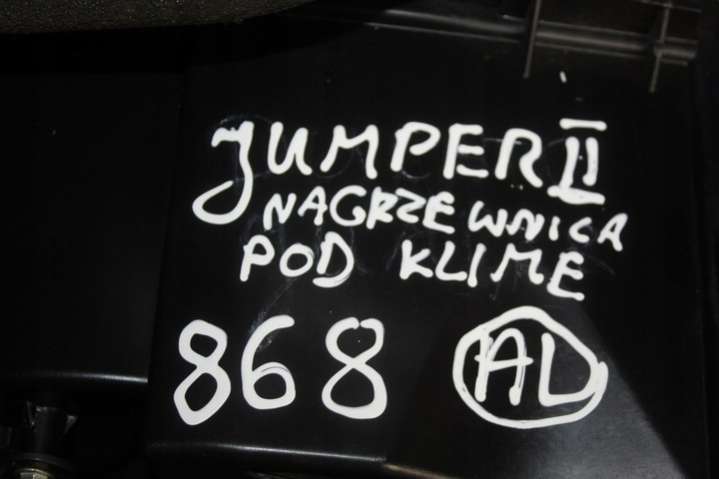 JUMPER II
NAGRZEWNICA
POD KLIME
868 AL